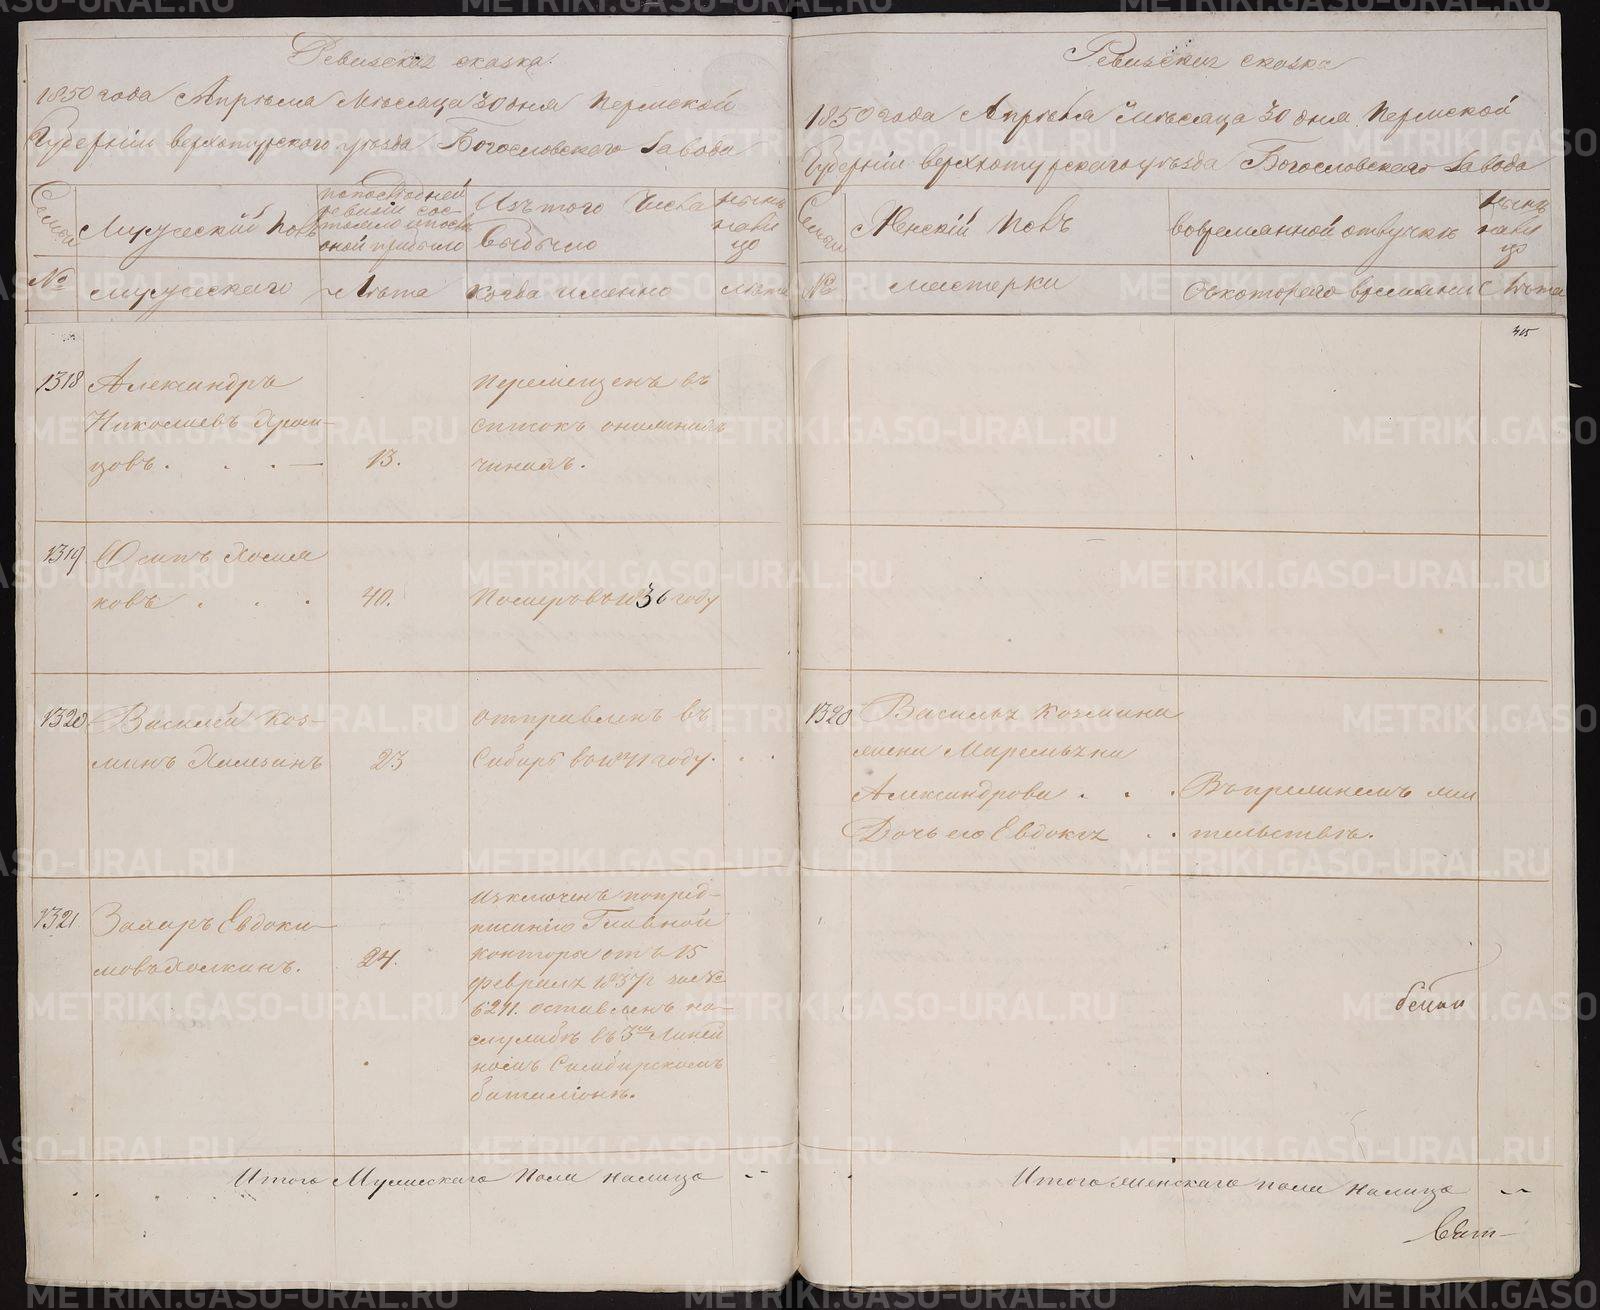 Ревизская сказка.
1850 года Апреля Месяца 30 дня Пермской
Губернiи верхотурского уезда Богословского завода
Семьи
Мужеский Полъ
По последней
ревизiи сос-
тояло и после
оной прибыло
Изъ того Числа
Выбыло
ныне
нали
цо
№
мужескаго
Лета
Когда именно
лета
1318
Александръ
Николаевъ Храм-
цовъ . . . —
13.
Перемещенъ въ
списокъ
чиновъ.
1319
Осипъ Холмя
ковъ . . .
40.
Померъ въ 1836 году
1320
Василей Коз-
минъ Халезинъ
23
отправленъ въ
Сибирь въ 1841 году.
1321
Захаръ Евдоки-
мовъ Холкинъ.
24.
Изключенъ по пред-
писанiю Главной
конторы отъ 15
февраля 1837 г за №
6211. оставленъ на
службе въ 3м Линей
номъ Симбирскомъ
баталiоне.
Итого Мужескаго Пола налицо -
Ревизская сказка
1850 года Апреля Месяца 30 дня Пермской
Губернiи верхотурскаго уезда Богословского завода
Семьи
Женскiй Полъ
во временной отлучке
ныне
нали
цо
№
мастерки
Съ котораго времяни
Лета
315
1320
Василья Козмина
жена Маремьяна
Александрова . . .
Дочь его Евдокiя . .
Въ прежнемъ жи
тельстве.
Итого женскаго пола налицо -
METRIKI.GASO-URAL.RU